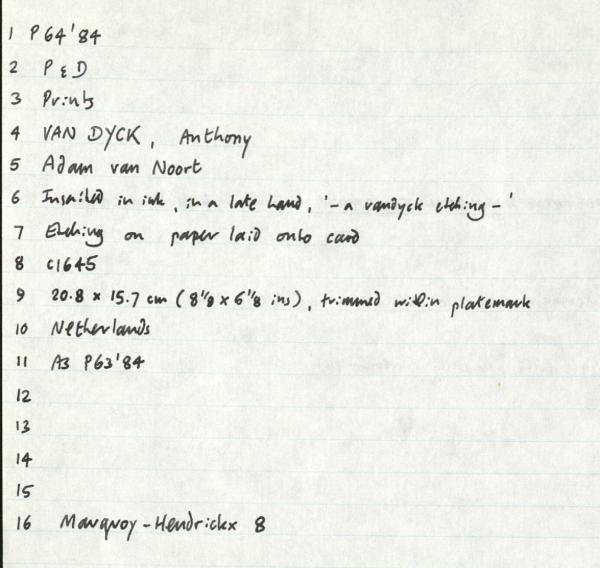 1 P64'84
2 P & D
3 Prints
4 VAN DYCK, Anthony
5 Adam van Noort
6 Inscribed in ink, in a late hand, '-a vandyck etching-'
7 Etching on paper laid onto card
8 c1645
9 20.8 x 15.7 cm (8 1/8 x 6 1/8 ins), trimmed within platemark
10 Netherlands
11 A3 P63'84
12
13
14
15
16 Mauquoy-Hendrickx 8